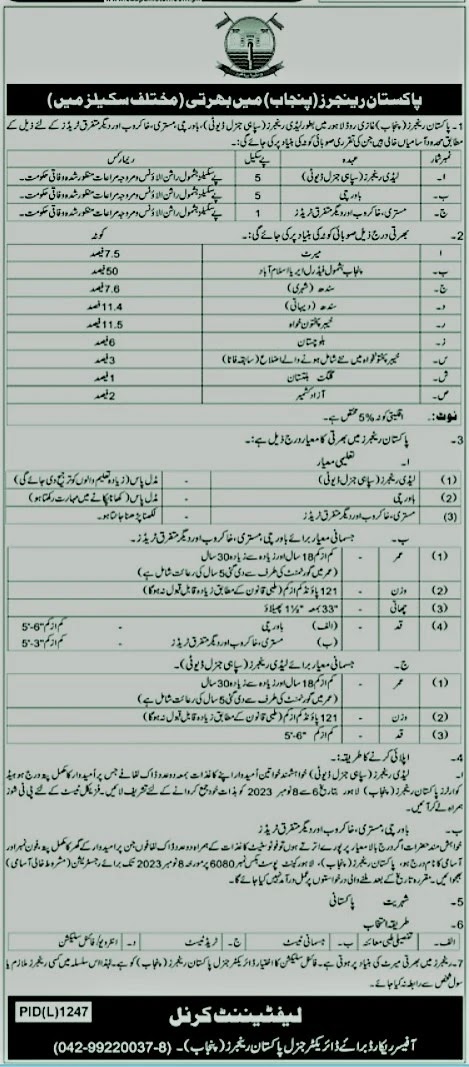 پاکستان رینجرز (پنجاب) میں بھرتی (مختلف سکیلز میں)
1- پاکستان رینجرز (پنجاب) غازی روڈ لاہور میں بطور لیڈی رینجرز (سپاہی جنرل ڈیوٹی)، باورچی، مستری، خاکروب اور دیگر متفرق ٹریڈز کے لئے ذیل کے
مطابق محدود آسامیاں خالی ہیں جن کی تقرری صوبائی کوٹہ کی بنیاد پر کی جائے گی:۔
نمبر شمار عہدہ پے سکیل ریمارکس
ا۔ لیڈی رینجرز (سپاہی جنرل ڈیوٹی) 5 پے سکیلز بشمول راشن الاؤنس و مروجہ مراعات منظور شدہ وفاقی حکومت۔
ب۔ باورچی 5 پے سکیلز بشمول راشن الاؤنس و مروجہ مراعات منظور شدہ وفاقی حکومت۔
ج۔ مستری، خاکروب اور دیگر متفرق ٹریڈز 1 پے سکیلز بشمول راشن الاؤنس و مروجہ مراعات منظور شدہ وفاقی حکومت۔
2- بھرتی درج ذیل صوبائی کوٹہ کی بنیاد پر کی جائے گی:۔ کوٹہ
ا میرٹ 7.5 فیصد
ب۔ پنجاب بشمول فیڈرل ایریا اسلام آباد 50 فیصد
ج۔ سندھ (شہری) 7.6 فیصد
د۔ سندھ (دیہاتی) 11.4 فیصد
ر۔ خیبر پختون خواہ 11.5 فیصد
ز۔ بلوچستان 6 فیصد
س۔ خیبر پختونخواہ میں نئے شامل ہونے والے اضلاع (سابقہ فاٹا) 3 فیصد
ش۔ گلگت بلتستان 1 فیصد
ص۔ آزاد کشمیر 2 فیصد
نوٹ: اقلیتی کوٹہ 5% مختص ہے۔
3- پاکستان رینجرز میں بھرتی کا معیار درج ذیل ہے:۔
ا۔ تعلیمی معیار
(1) لیڈی رینجرز (سپاہی جنرل ڈیوٹی) - مڈل پاس (زیادہ تعلیم والوں کو ترجیح دی جائے گی)
(2) باورچی - مڈل پاس (کھانا پکانے میں مہارت رکھتا ہو)
(3) مستری، خاکروب اور دیگر متفرق ٹریڈز - لکھنا پڑھنا جانتا ہو۔
ب۔ جسمانی معیار برائے باورچی، مستری، خاکروب اور دیگر متفرق ٹریڈز۔
(1) عمر - کم از کم 18 سال اور زیادہ سے زیادہ 30 سال
(عمر میں گورنمنٹ کی طرف سے دی گئی 5 سال کی رعائت شامل ہے)
(2) وزن - 121 پاؤنڈ کم از کم (طبی قانون کے مطابق زیادہ قابل قبول نہ ہوگا)
(3) چھاتی - 33" بمعہ 1½" پھیلاؤ
(4) قد - (الف) باورچی - کم از کم 5'-6"
(ب) مستری، خاکروب اور دیگر متفرق ٹریڈز - کم از کم 5'-3"
ج۔ جسمانی معیار برائے لیڈی رینجرز (سپاہی جنرل ڈیوٹی)۔
(1) عمر - کم از کم 18 سال اور زیادہ سے زیادہ 30 سال
(عمر میں گورنمنٹ کی طرف سے دی گئی 5 سال کی رعائت شامل ہے)
(2) وزن - 121 پاؤنڈ کم از کم (طبی قانون کے مطابق زیادہ قابل قبول نہ ہوگا)
(3) قد - کم از کم 5'-6"
4- اپلائی کرنے کا طریقہ:۔
ا۔ لیڈی رینجرز (سپاہی جنرل ڈیوٹی) خواہشمند خواتین امیدوار اپنے کاغذات بمعہ دو عدد ڈاک لفافے جس پر امیدوار کا مکمل پتہ درج ہو ہیڈ
کوارٹرز پاکستان رینجرز (پنجاب) لاہور بتاریخ 6 سے 8 نومبر 2023 کو بذات خود جمع کروانے کے لئے تشریف لائیں۔ فزیکل ٹیسٹ کے لئے پی ٹی شوز
ہمراہ لے کر آئیں۔
ب۔ باورچی، مستری، خاکروب اور دیگر متفرق ٹریڈز
خواہش مند حضرات اگر درج بالا معیار پر پورے اترتے ہوں تو فوٹو سٹیٹ کاغذات کے ہمراہ دو عدد ڈاک لفافوں جن پر امیدوار کے گھر کا مکمل پتہ، فون نمبر اور
آسامی کا نام درج ہو، پاکستان رینجرز (پنجاب)، لاہور کینٹ پوسٹ بکس نمبر 6080 پر مورخہ 8 نومبر 2023 تک برائے رجسٹریشن (مشروط خالی آسامی)
بھجوائیں۔ مقررہ تاریخ کے بعد ملنے والی درخواستوں پر عمل درآمد نہیں کیا جائے گا۔
5- شہریت پاکستانی
6- طریقہ انتخاب
الف۔ تفصیلی طبی معائنہ ب۔ جسمانی ٹیسٹ ج۔ ٹریڈ ٹیسٹ د۔ انٹرویو / فائنل سلیکشن
7- رینجرز میں بھرتی میرٹ کی بنیاد پر ہوتی ہے۔ فائنل سلیکشن کا اختیار ڈائریکٹر جنرل پاکستان رینجرز (پنجاب) کو ہے۔ لہٰذا اس سلسلہ میں کسی رینجرز ملازم یا
سول شخص سے رابطہ نہ کیا جائے۔
PID(L)1247
لیفٹیننٹ کرنل
آفیسر ریکارڈ برائے ڈائریکٹر جنرل پاکستان رینجرز (پنجاب)۔ (042-99220037-8)